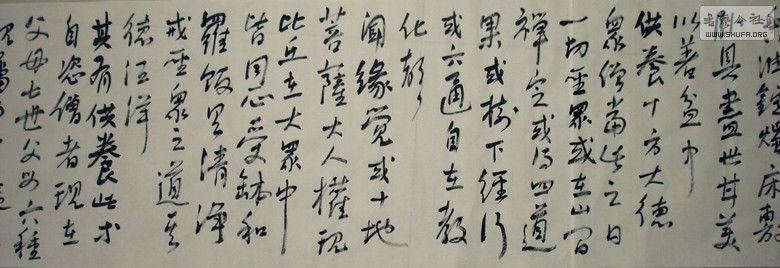 油錠燭床敷
臥具盡世甘美
以著盆中
供養十方大德
眾僧當此之日
一切聖眾或在山間
禪定或得四道
果或樹下經行
或六通自在教
化聲
聞緣覺或十地
菩薩大人權現
比丘在大眾中
皆同心受鉢和
羅飯具清淨
戒聖眾之道其
德汪洋
其有供養此等
自恣僧者現在
父母七世父母六種
WWW.SHUFA.ORG